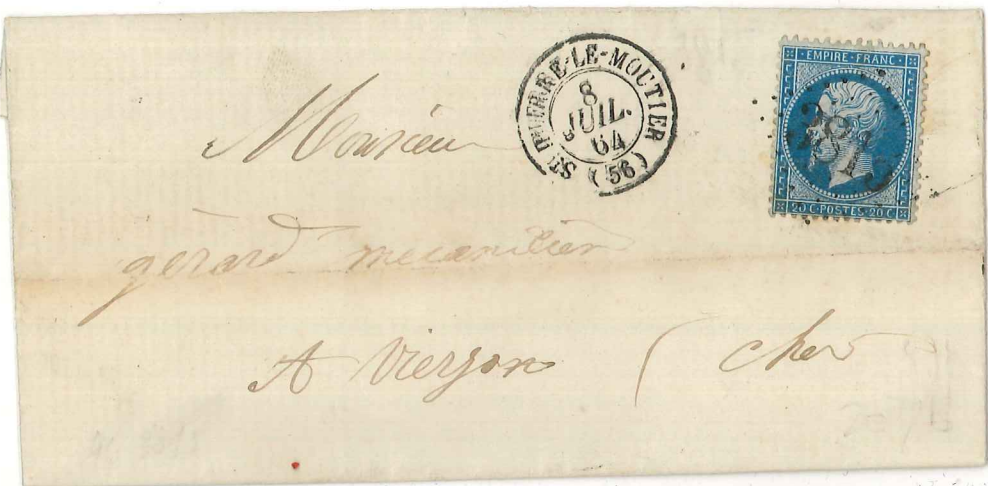 ST PIERRE-LE-MOUTIER
8
JUIL.
64
(56)
EMPIRE-FRANC
20 C-POSTES-20 C
Monsieur
gérard mecanicien
A Vierzon ( cher